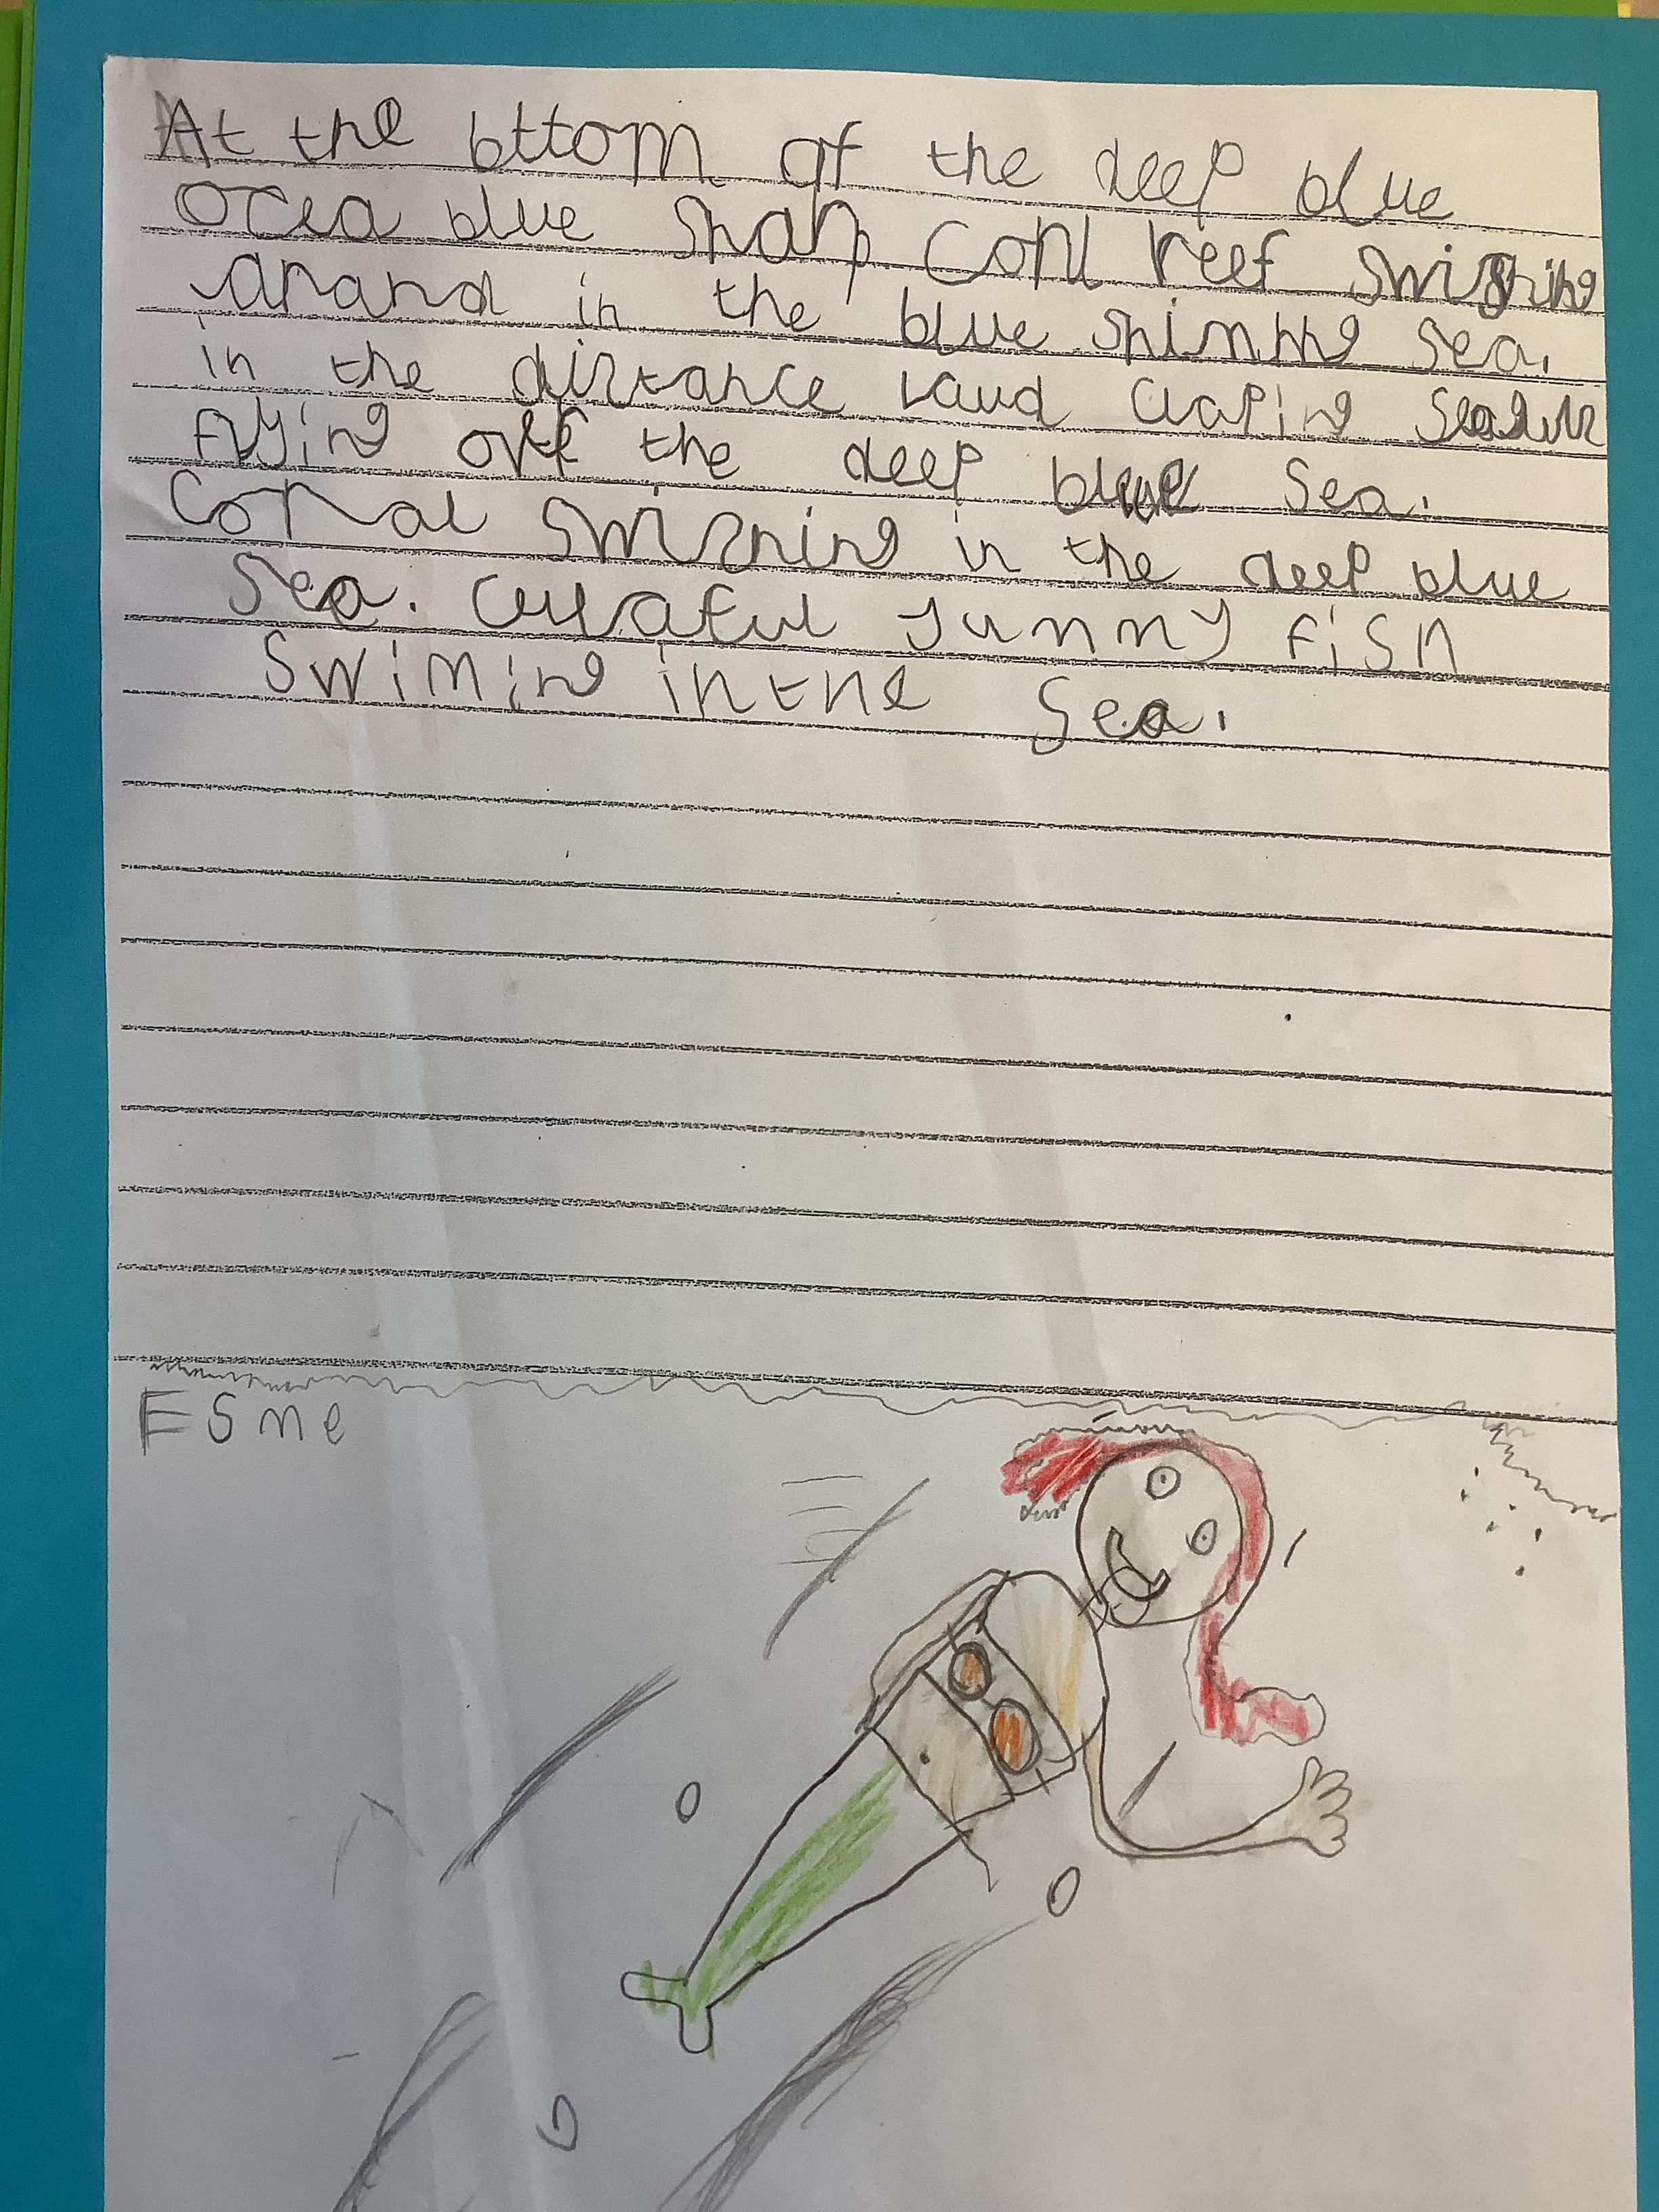 At the bttom of the deep blue
ocea blue sharp corl reef swirning
arand in the blue shinng sea.
in the distance laud claping
flying off the deep blue sea.
Coral swirning in the deep blue
sea. Culaful yummy fish
swiming in the sea.
Esme